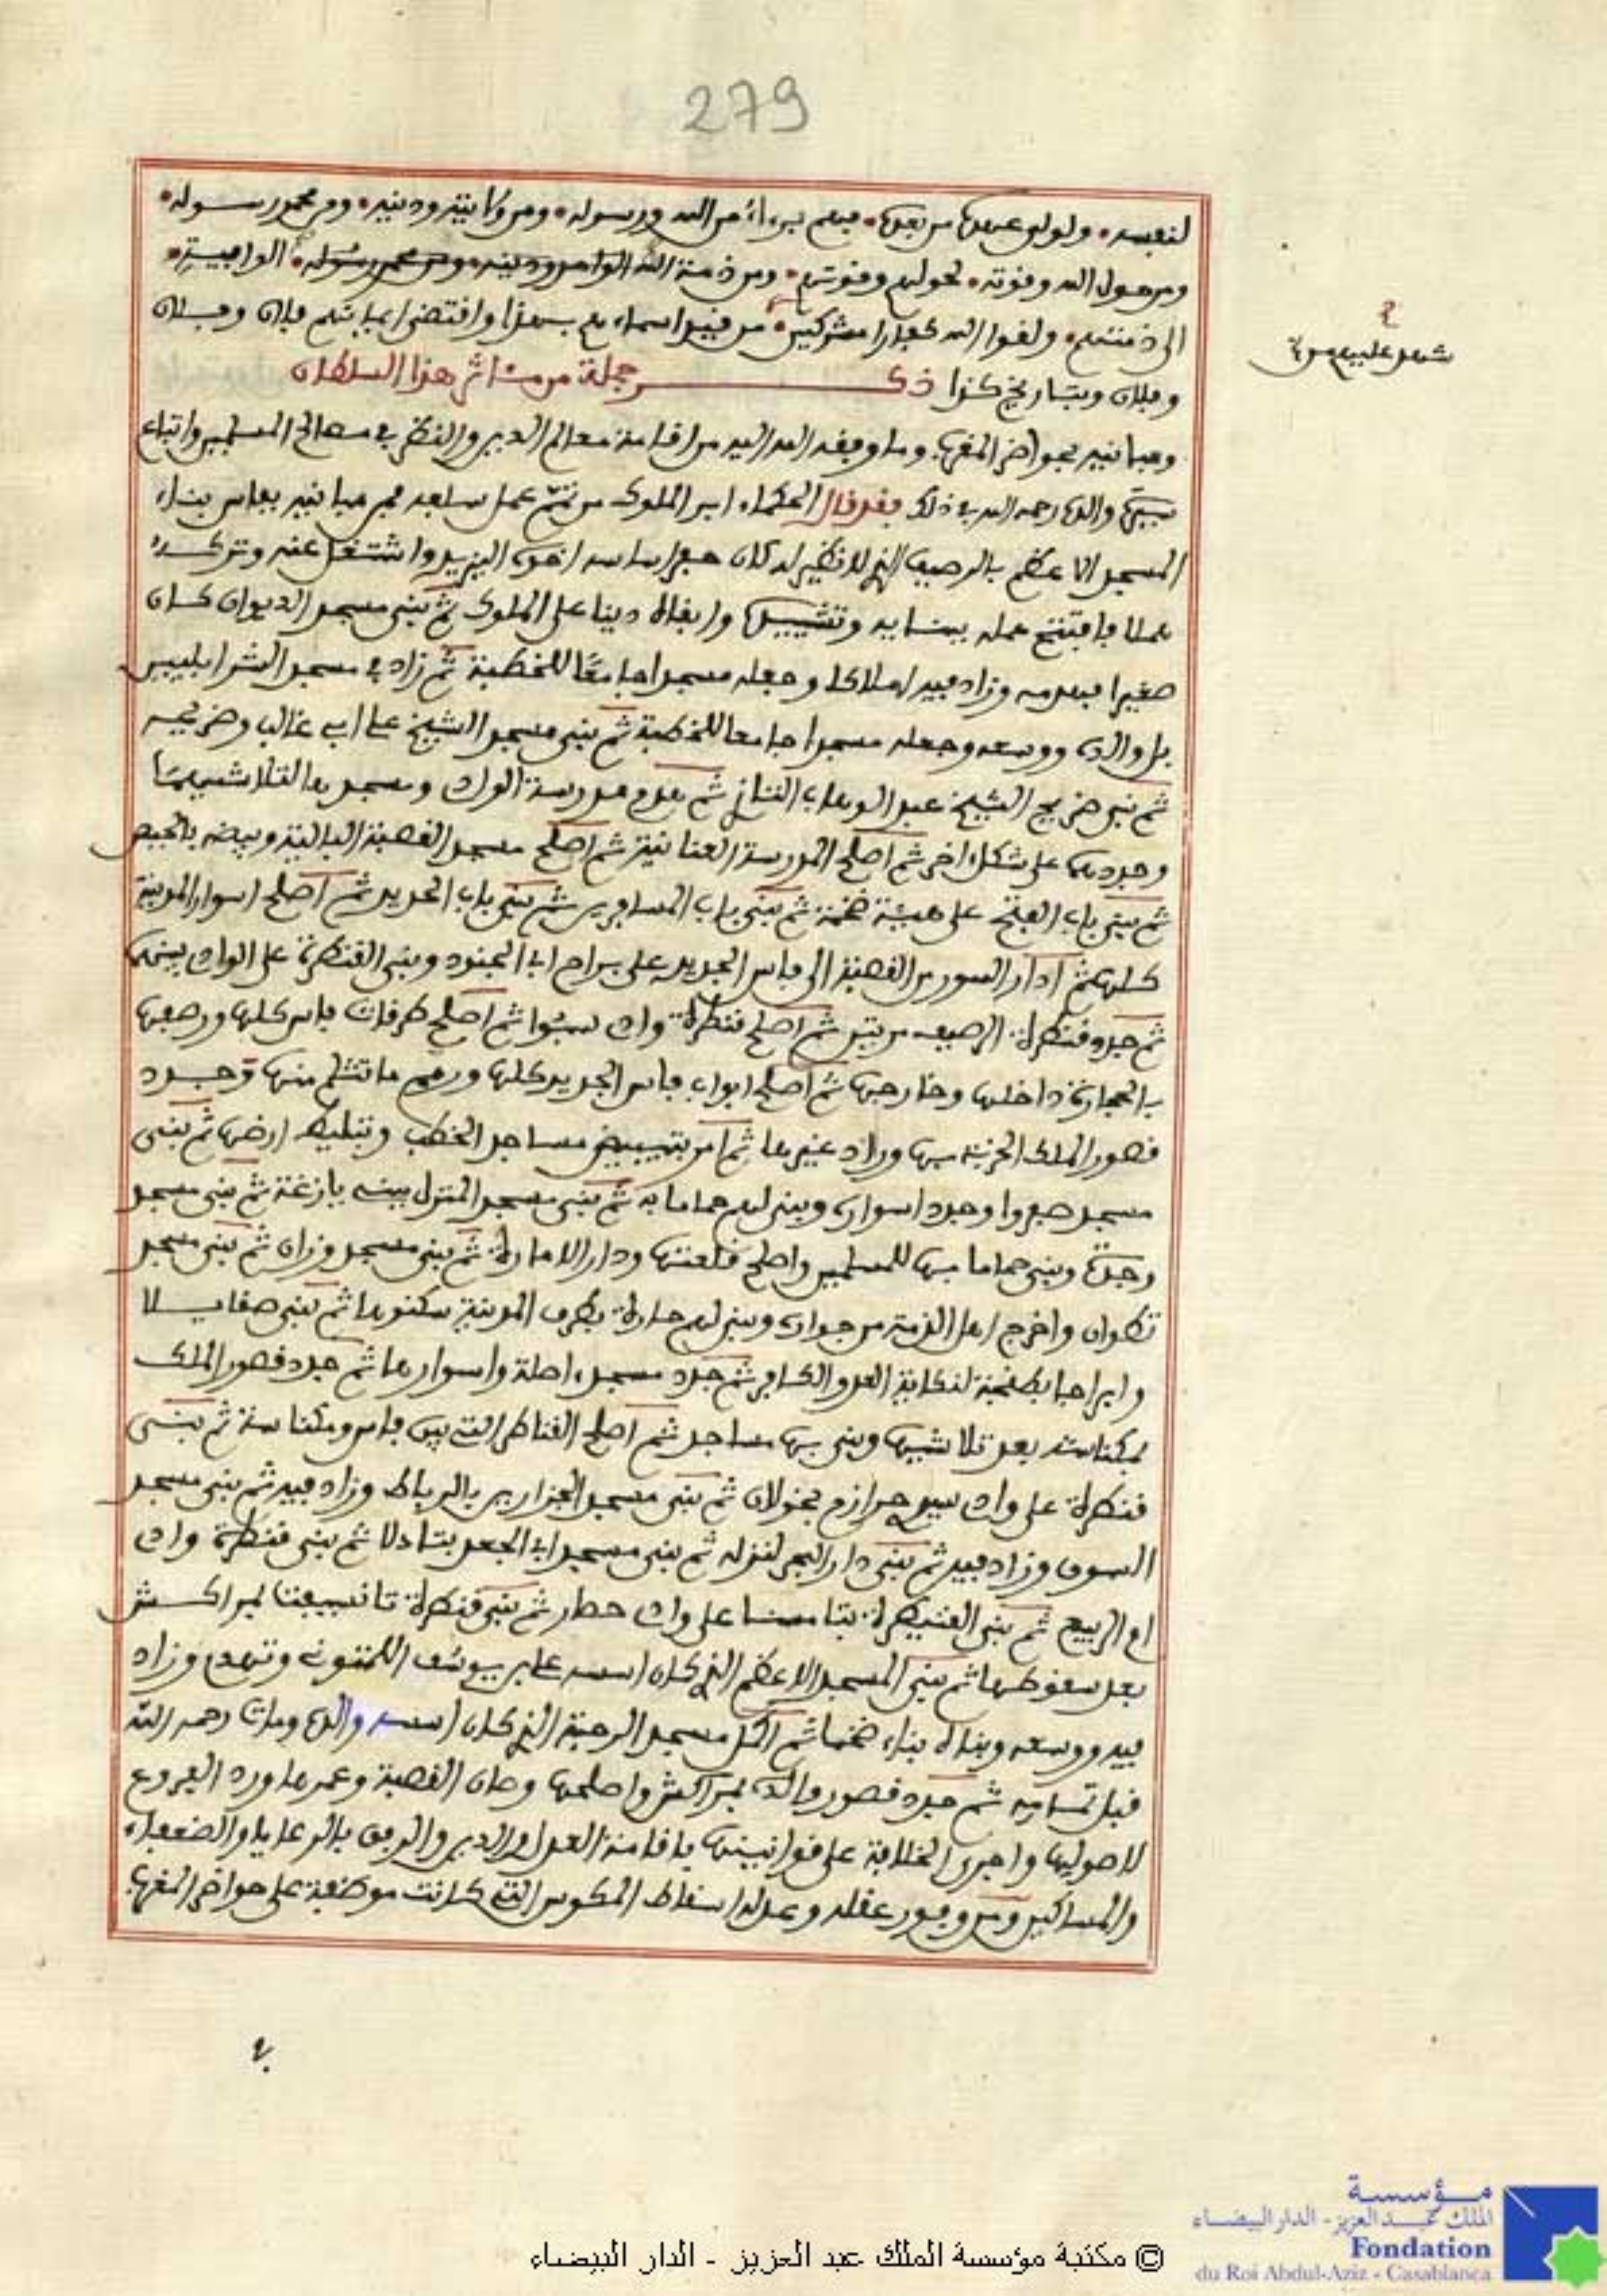 279
لنفسه • ولولي عهدها من بعدها • فهم برءاء من الله ورسوله • ومن ولايته ودينه • ومن محمد رسوله •
ومن حول الله وقوته • لحولهم وقوتهم • ومن ذمة الله الواجبة •
الى ذمتهم • ولقوا الله كفارا مشركين • من قيد اسماءهم بهذا واقتضى ايمانهم فلان وفلان
شهد عليهم من
وفلان وبتاريخ كذا ذكر جملة من مئاثر هذا السلطان
ومبانيه بحواضر المغرب وما وفقه الله اليه من اقامة معالم الدين والنظر في مصالح المسلمين واتباع
سيرة والده رحمه الله في ذلك فقد قال الحكماء ابر الملوك من تمم عمل سلفه فمن مبانيه بفاس بناء
المسجد الاعظم بالرصيف الذي لا نظير له كان حفر اساسه اخوه اليزيد واشتغل عنه وتركه
عملا فافتتح عمله ببنايه وتشييده وابقاه دينا على الملوك ثم بنى مسجد الديوان كان
صغيرا فهدمه وزاد فيه املاكا وجعله مسجدا جامعا للخطبة ثم زاد في مسجد الشرابليين
بل والدي ووسعه وجعله مسجدا جامعا للخطبة ثم بنى مسجد الشيخ علي ابي غالب وضريحه
ثم بنى ضريح الشيخ عبد الوهاب التازي ثم هدم مدرسة الواد ومسجدها لتلاشيهما
وجددهما على شكل اخر ثم اصلح المدرسة العنانية ثم اصلح مسجد القصبة البالية وبيضه بالجبص
ثم بنى باب الفتح على هيئة ضخمة ثم بنى باب المسافرين ثم بنى باب الحديد ثم اصلح اسوار المدينة
كلها ثم ادار السور من القصبة الى فاس الجديد على براح ابي الجنود وبنى القنطرة على الواد بينهما
ثم جدد قنطرة الرصيف مرتين ثم اصلح قنطرة واد سبوا ثم اصلح طرقات فاس كلها ورصفها
بالحجارة داخلها وخارجها ثم اصلح ابواب فاس الجديد كلها ورمم ما تثلم منها وجدد
قصور الملك الخربة بها وزاد غيرها ثم امر بتبييض مساجد الخطب وتبليط ارضها ثم بنى
مسجد صفروا وجدد اسواره وبنى لهم حماما به ثم بنى مسجد المنزل ببني يازغة ثم بنى مسجد
وجدة وبنى حماما بها للمسلمين واصلح قلعتها ودار الامارة ثم بنى مسجد وزان ثم بنى مسجد
تطوان واخرج اهل الذمة من جواره وبنى لهم حارة بطرف المدينة سكنوها ثم بنى صقايلا
وابراجا بطنجة لنكاية العدو الكافر ثم جدد مسجد اصلة واسوارها ثم جدد قصور الملك
بمكناسة بعد تلاشيها وبنى بها مساجد ثم اصلح القناطر التي بين فاس ومكناسة ثم بنى
قنطرة على واد سيدي حرازم بخولان ثم بنى مسجد الجزارين بالرباط وزاد فيه ثم بنى مسجد
السوق وزاد فيه ثم بنى دار البحر لنزله ثم بنى مسجد ابي الجعد بتادلا ثم بنى قنطرة واد
ام الربيع ثم بنى القنيطرة بتامسنا على واد حصار ثم بنى قنطرة تانسيفت لمراكش
بعد سقوطها ثم بنى المسجد الاعظم الذي كان اسسه علي بن يوسف اللمتوني وتهدم وزاد
فيه ووسعه وبناه بناء ضخما ثم اكمل مسجد الرحبة الذي كان اسسه والده ومات رحمه الله
قبل تمامه ثم جدد قصور والده بمراكش واصلحها وصان القصبة وعمرها ورد الفروع
لاصولها واجرى الخلافة على قوانينها باقامة العدل والدين والرفق بالرعايا والضعفاء
والمساكين ومن وفور عقله وعدله اسقاط المكوس التي كانت موظفة على حواضر المغرب
© مكتبة مؤسسة الملك عبد العزيز - الدار البيضاء
مؤسسة
الملك عبد العزيز - الدار البيضاء
Fondation
du Roi Abdul-Aziz - Casablanca